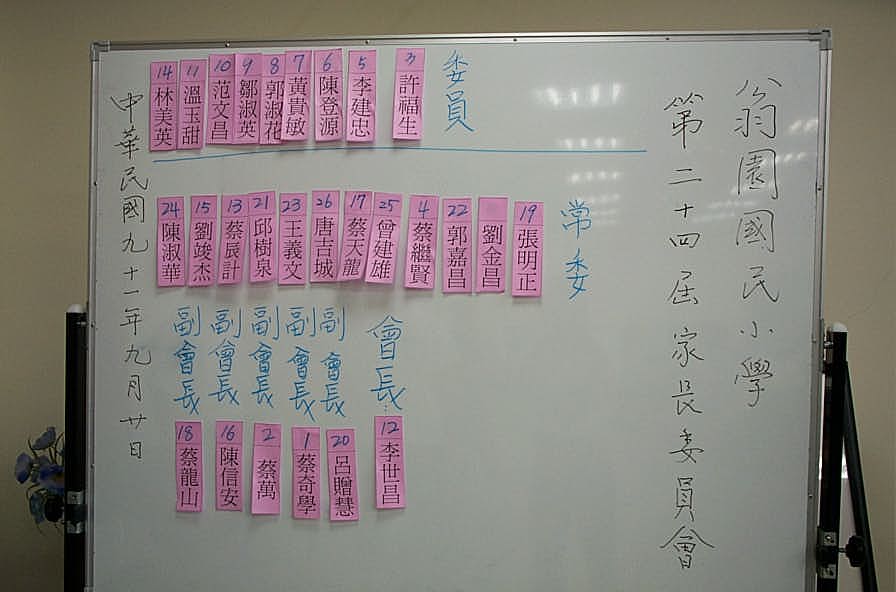 翁園國民小學
第二十四屆家長委員會
委員
3 許福生
5 李建忠
6 陳登源
7 黃貴敏
8 郭淑花
9 鄒淑英
10 范文昌
11 溫玉甜
14 林美英
常委
19 張明正
劉金昌
22 郭嘉昌
4 蔡繼賢
25 曾建雄
17 蔡天龍
26 唐吉城
23 王義文
21 邱樹泉
13 蔡辰計
15 劉竣杰
24 陳淑華
會長:
12 李世昌
副會長
20 呂贈慧
副會長
1 蔡奇學
副會長
2 蔡萬
副會長
16 陳信安
副會長
18 蔡龍山
中華民國九十一年九月廿日